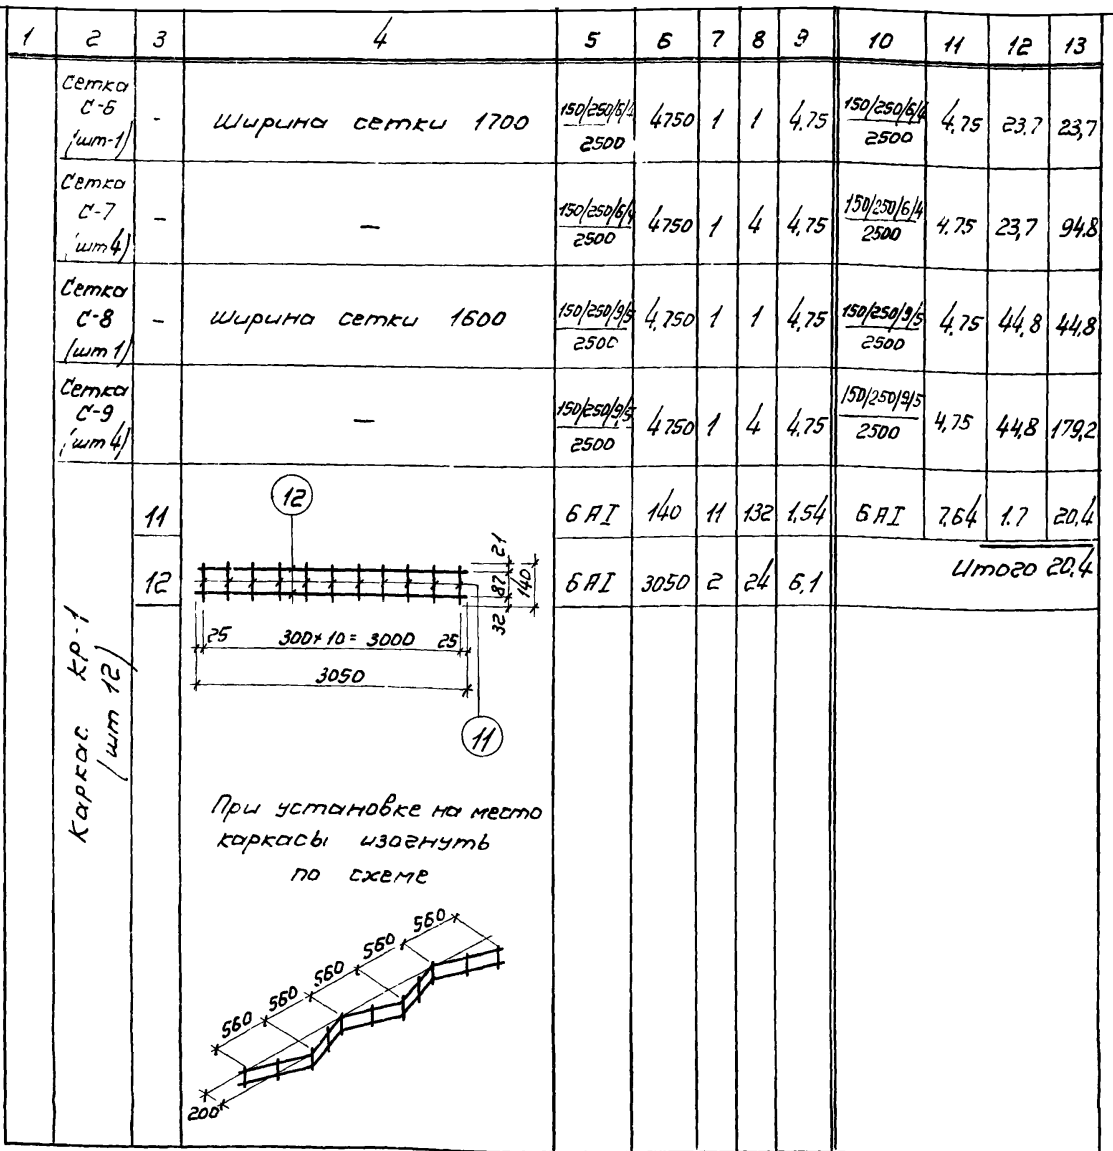 1 2 3 4 5 6 7 8 9 10 11 12 13
Сетка
С-6
(шт-1)
-
Ширина сетки 1700
150/250/6/4
2500
4750 1 1 4,75
150/250/6/4
2500
4,75 23,7 23,7
Сетка
С-7
(шт 4)
-
-
150/250/6/4
2500
4750 1 4 4,75
150/250/6/4
2500
4.75 23,7 94,8
Сетка
С-8
(шт 1)
-
Ширина сетки 1600
150/250/9/5
2500
4,750 1 1 4,75
150/250/9/5
2500
4,75 44,8 44,8
Сетка
С-9
(шт 4)
-
150/250/9/5
2500
4750 1 4 4,75
150/250/9/5
2500
4,75 44,8 179,2
Каркас КР-1
(шт 12)
11
6АI 140 11 132 1,54 6АI 7,64 1.7 20,4
12
6АI 3050 2 24 6,1
Итого 20,4
12
21
87
32
140
25 300×10=3000 25
3050
11
При установке на место
каркасы изогнуть
по схеме
560
560
560
560
560
200